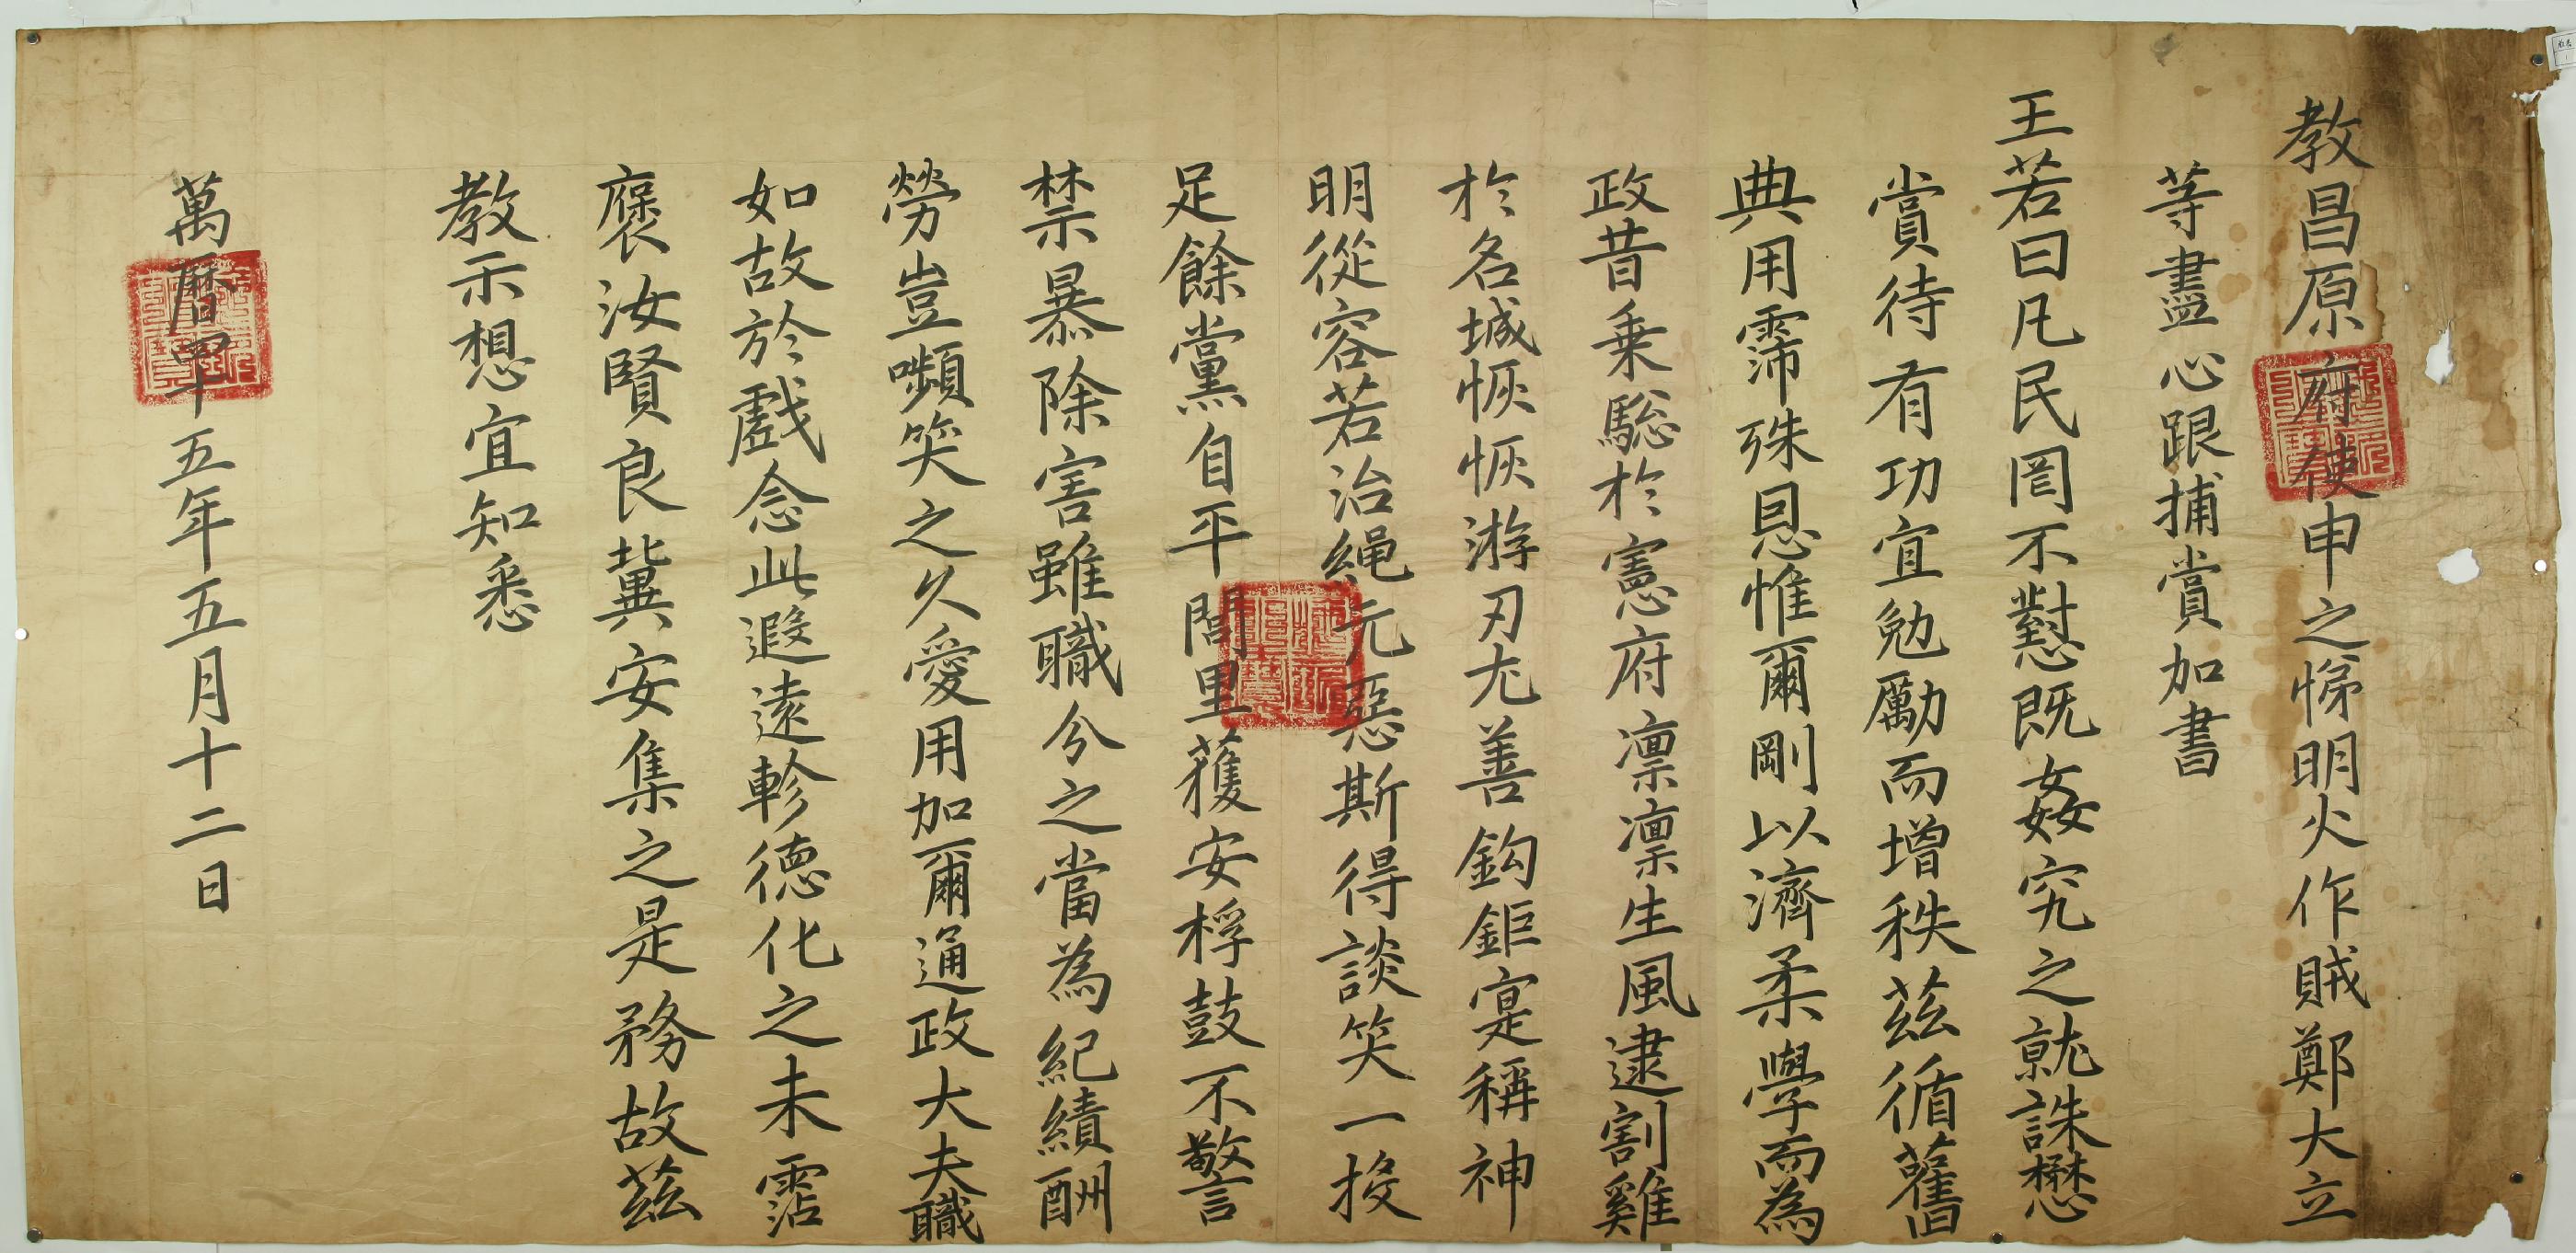 教昌原府使申之悌明火作賊鄭大立
等盡心跟捕賞加書
王若曰凡民罔不懟既姦宄之就誅懋
賞待有功宜勉勵而增秩茲循舊
典用霈殊恩惟爾剛以濟柔學而為
政昔乗驄於憲府凛凛生風逮割雞
於名城恢恢游刃尤善鈎鉅寔稱神
明從容若治繩元惡斯得談笑一投
足餘黨自平閭里獲安桴鼓不警
禁暴除害雖職分之當為紀績酬
勞豈嚬笑之久愛用加爾通政大夫職
如故於戲念此遐遠軫德化之未霑
褒汝賢良冀安集之是務故茲
教示想宜知悉
萬曆四十五年五月十二日